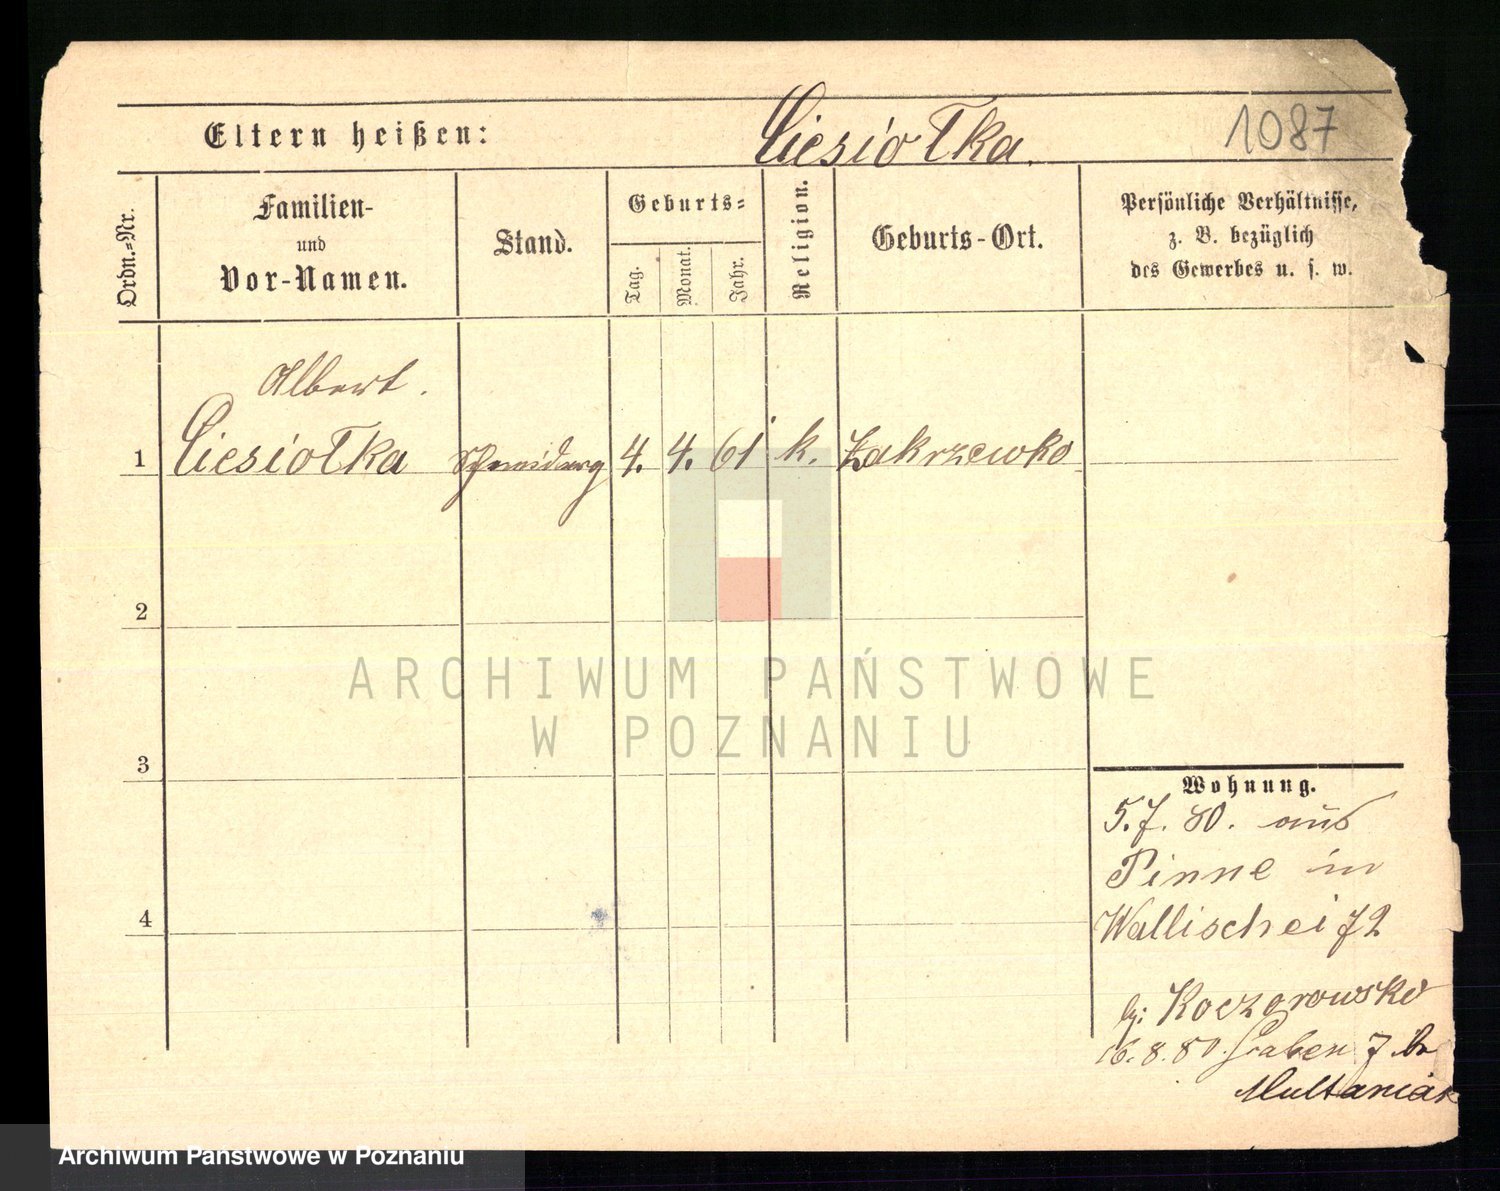 Eltern heißen: Ciesiolka.
1087
Ordn.-Nr.
Familien-
und
Vor-Namen.
Stand.
Geburts-
Tag.
Monat.
Jahr.
Religion.
Geburts-Ort.
Persönliche Verhältnisse,
z. B. bezüglich
des Gewerbes u. s. w.
Albert.
1 Ciesiolka 4. 4. 61 k. Zakrzewko
2
ARCHIWUM PAŃSTWOWE
W POZNANIU
3
Wohnung.
5.7.80. aus
Pinne in
4
Wallischei 72
Koczorowski
16.8.80. Graben 7 b
Multaniak
Archiwum Państwowe w Poznaniu